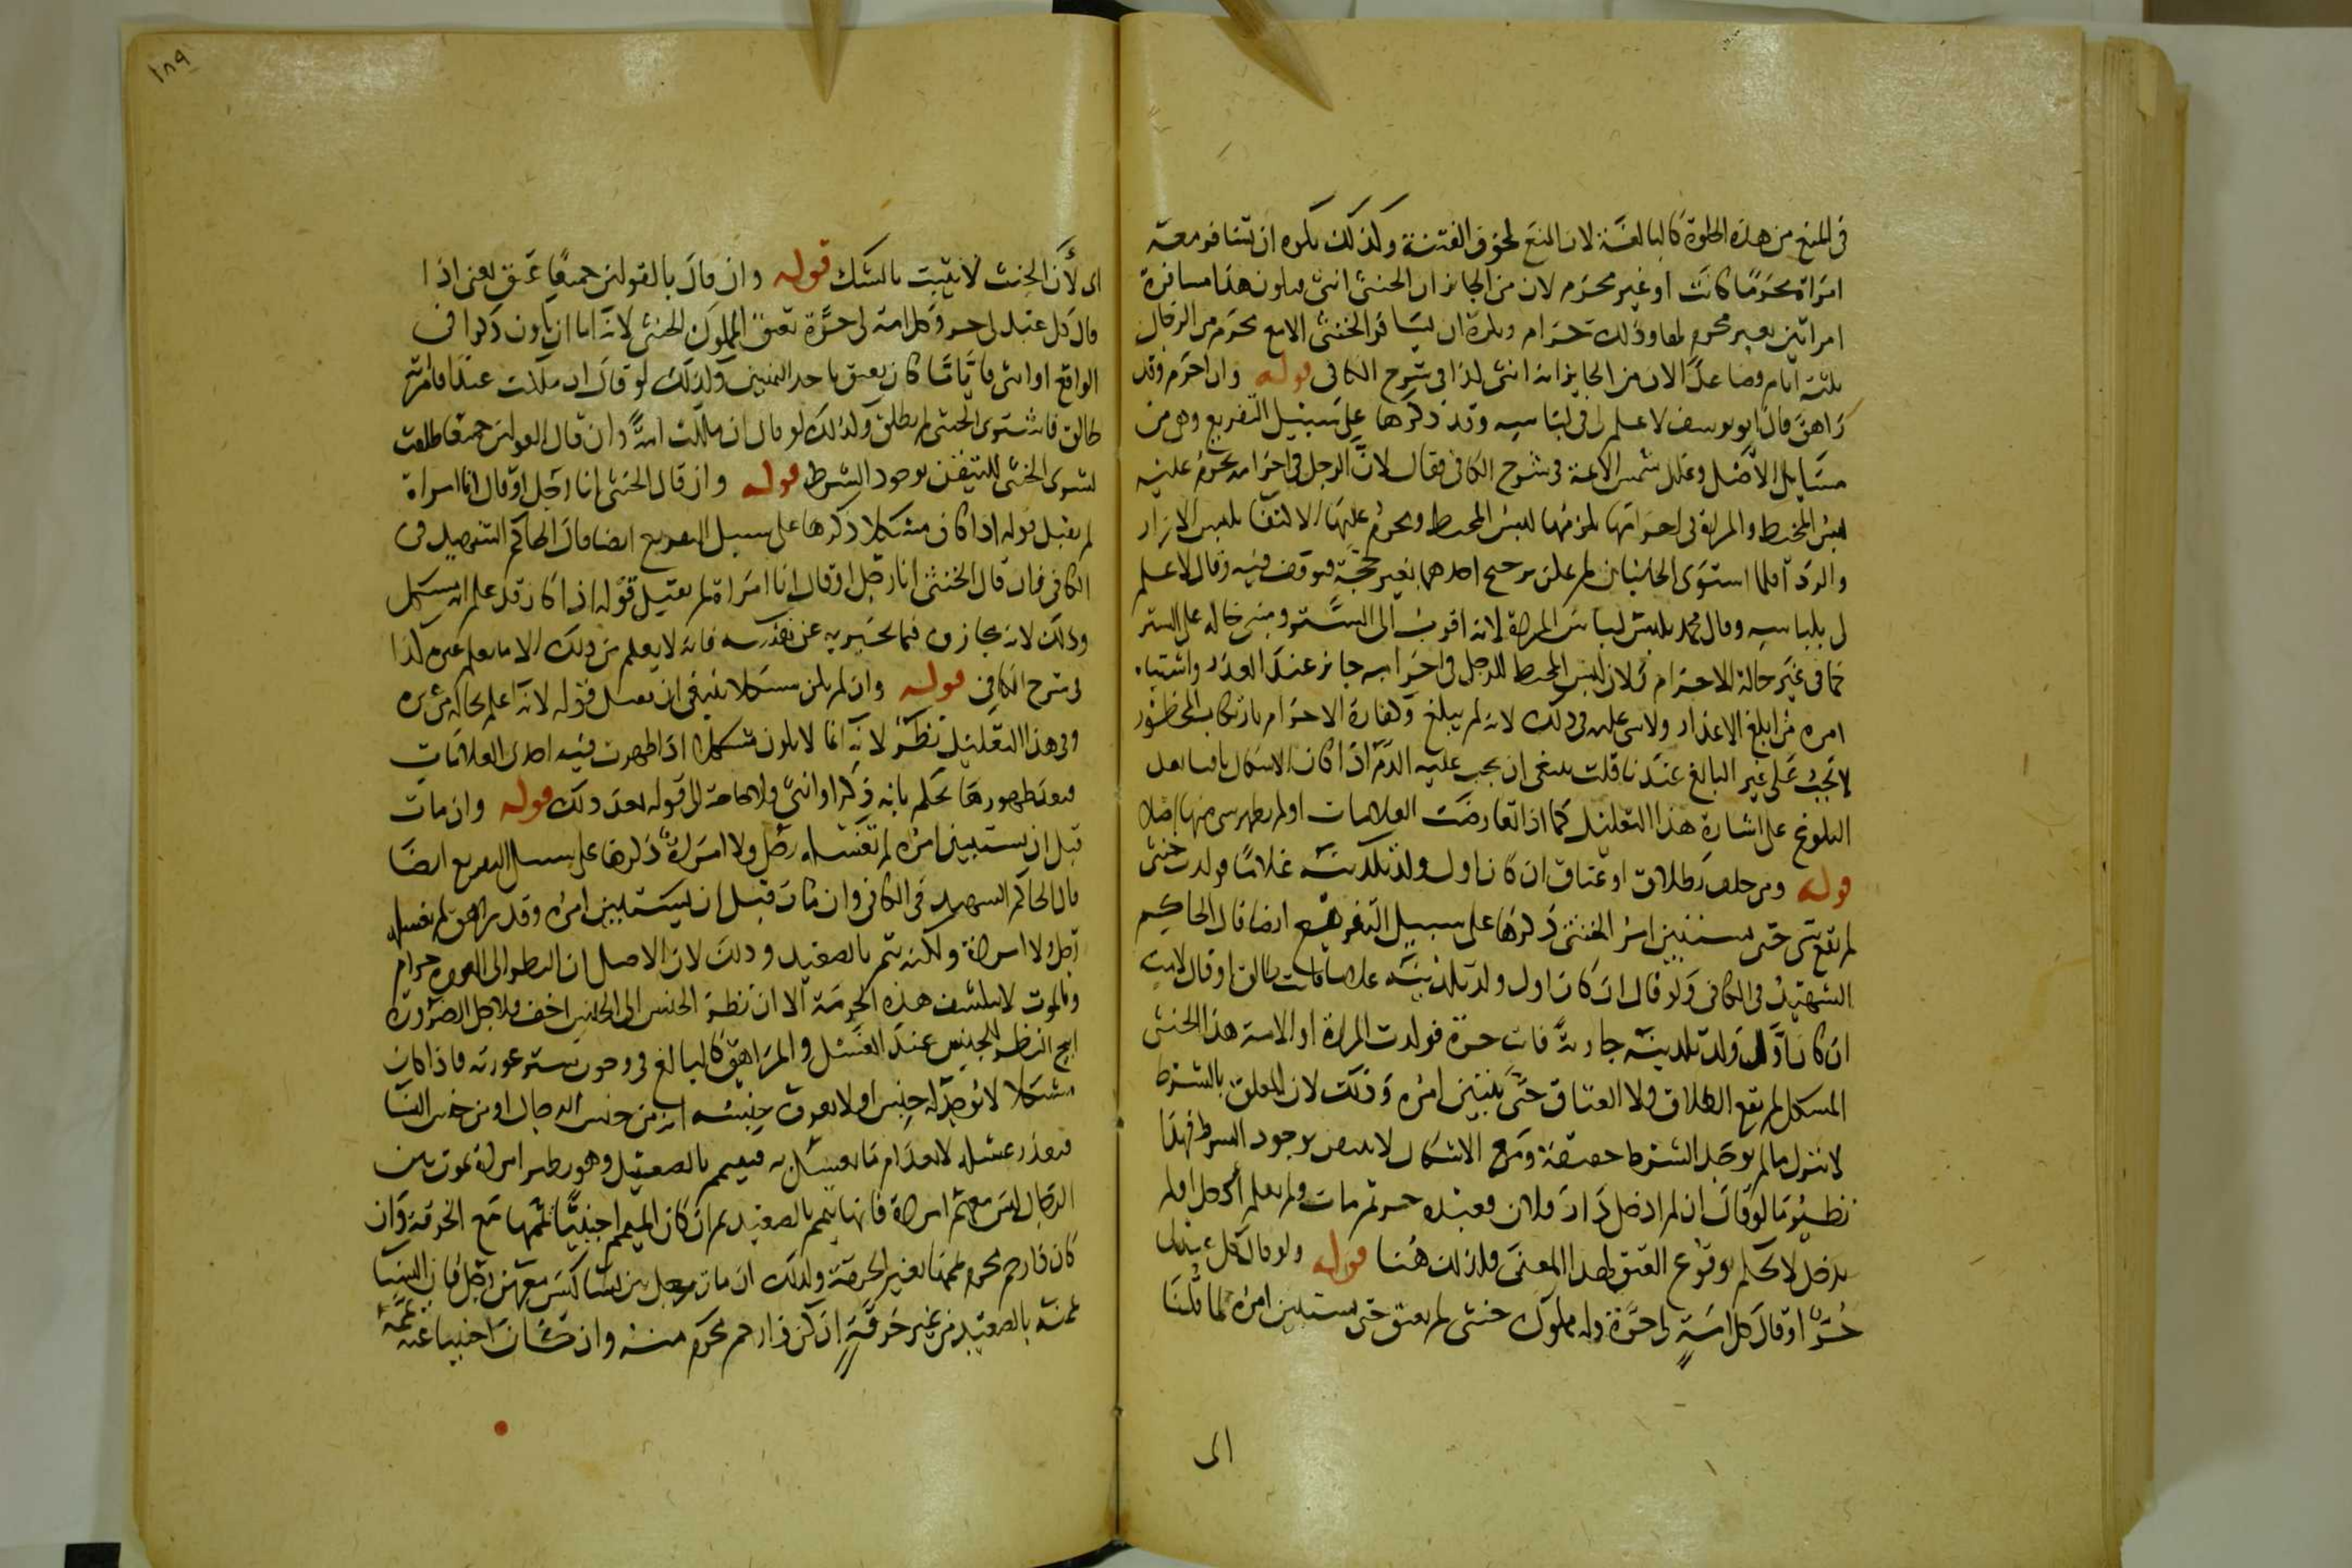 في المنع من هذه الخلوة كالبالغة لان المنع لخوف الفتنة وكذلك يكره ان تسافر معه
امراة محرما كانت او غير محرم لان من الجائز ان الخنثى انثى فيكون هذا مسافرة
امراتين بغير محرم لهما وذلك حرام ويكره ان يسافر الخنثى الا مع محرم من الرجال
ثلثة ايام فصاعدا لان من الجايز انه انثى كذا في شرح الكافي قوله وان احرم وقد
راهق قال ابو يوسف لا علم لي في لباسه وقد ذكرها على سبيل التفريع وهي من
مسايل الاصل وعلل شمس الائمة في شرح الكافي فقال لان الرجل في احرامه يحرم عليه
لبس المخيط والمراة في احرامها يلزمها لبس المخيط ويحرم عليها الاكتفا بلبس الازار
والردا فلما استوى الجانبان لم يمكن ترجيح احدهما بغير حجة فتوقف فيه وقال لا علم
لي بلباسه وقال محمد يلبس لباس المراة لانه اقرب الى الستر ومبنى حاله على الستر
كما في غير حالة الاحرام ولان لبس المخيط للرجل في احرامه جايز عند العذر واشتباه
امره من ابلغ الاعذار ولا شي عليه في ذلك لانه لم يبلغ وكفارة الاحرام بارتكاب المحظور
لا تجب على غير البالغ عندنا قلت ينبغي ان يجب عليه الدم اذا كان الاشكال باقيا بعد
البلوغ على اشارة هذا التعليل كما اذا تعارضت العلامات او لم يظهر شي منها اصلا
قوله ومن حلف بطلاق او عتاق ان كان اول ولد تلدينه غلاما فولدت خنثى
لم يقع شي حتى يستبين امر الخنثى ذكرها على سبيل التفريع ايضا قال الحاكم
الشهيد في الكافي ولو قال ان كان اول ولد تلدينه غلاما فانت طالق او قال لامته
ان كان اول ولد تلدينه جارية فانت حرة فولدت المراة او الامة هذا الخنثى
المشكل لم يقع الطلاق ولا العتاق حتى يتبين امره وذلك لان المعلق بالشرط
لا ينزل ما لم يوجد الشرط حقيقة ومع الاشكال لا يتيقن بوجود الشرط فهذا
نظير ما لو قال ان لم ادخل دار فلان فعبده حر ثم مات ولم يعلم ادخل ام لم
يدخل لا يحكم بوقوع العتق لهذا المعنى فكذلك هنا قوله ولو قال كل عبد لي
حر او قال كل امة لي حرة وله مملوك خنثى لم يعتق حتى يستبين امره لما قلنا
اى
١٨٩
اى لان الحنث لا يثبت بالشك قوله وان قال بالقولين جميعا عتق يعني اذا
قال كل عبد لي حر وكل امة لي حرة يعتق المملوك الخنثى لانه اما ان يكون ذكرا في
الواقع او انثى فايا ما كان يعتق باحد اليمينين وكذلك لو قال ان ملكت عبدا فامرته
طالق فاشترى الخنثى لم تطلق وكذلك لو قال ان ملكت امة وان قال القولين جميعا طلقت
بشرى الخنثى للتيقن بوجود الشرط قوله وان قال الخنثى انا رجل او قال انا امراة
لم يقبل قوله اذا كان مشكلا ذكرها على سبيل التفريع ايضا قال الحاكم الشهيد في
الكافي فان قال الخنثى انا رجل او قال انا امراة لم يقبل قوله اذا كان قد علم انه مشكل
وذلك لانه مجازف فيما يخبر به عن نفسه فانه لا يعلم من ذلك الا ما يعلم غيره كذا
في شرح الكافي قوله وان لم يكن مشكلا ينبغي ان يقبل قوله لانه اعلم بحاله من غيره
وفي هذا التعليل نظر لانه انما لا يكون مشكلا اذا ظهرت فيه احدى العلامات
فبعد ظهورها يحكم بانه ذكر او انثى ولا حاجة الى قوله بعد ذلك قوله وان مات
قبل ان يستبين امره لم يغسله رجل ولا امراة ذكرها على سبيل التفريع ايضا
قال الحاكم الشهيد في الكافي وان مات قبل ان يستبين امره وقد راهق لم يغسله
رجل ولا امراة ولكنه يتمم بالصعيد وذلك لان الاصل ان النظر الى العورة حرام
وبالموت لا ينكشف هذه الحرمة الا ان نظر الجنس الى الجنس اخف فلاجل الضرورة
ابيح النظر للجنس عند الغسل والمراهق كالبالغ في وجوب ستر عورته فاذا كان
مشكلا لا يوجد له جنس او لا يعرف جنسه انه من جنس الرجال او من جنس النسا
فتعذر غسله لانعدام ما يغسل به فييمم بالصعيد وهو نظير امراة تموت بين
الرجال ليس معهم امراة فانها تيمم بالصعيد ثم ان كان الميمم اجنبيا يممها مع الخرقة وان
كان ذا رحم محرم يممها بغير الخرقة وكذلك ان مات رجل بين نسا ليس معهن رجل فان النسا
يممنه بالصعيد من غير خرقة ان كن ذا رحم محرم منه وان كان اجنبيا عنه